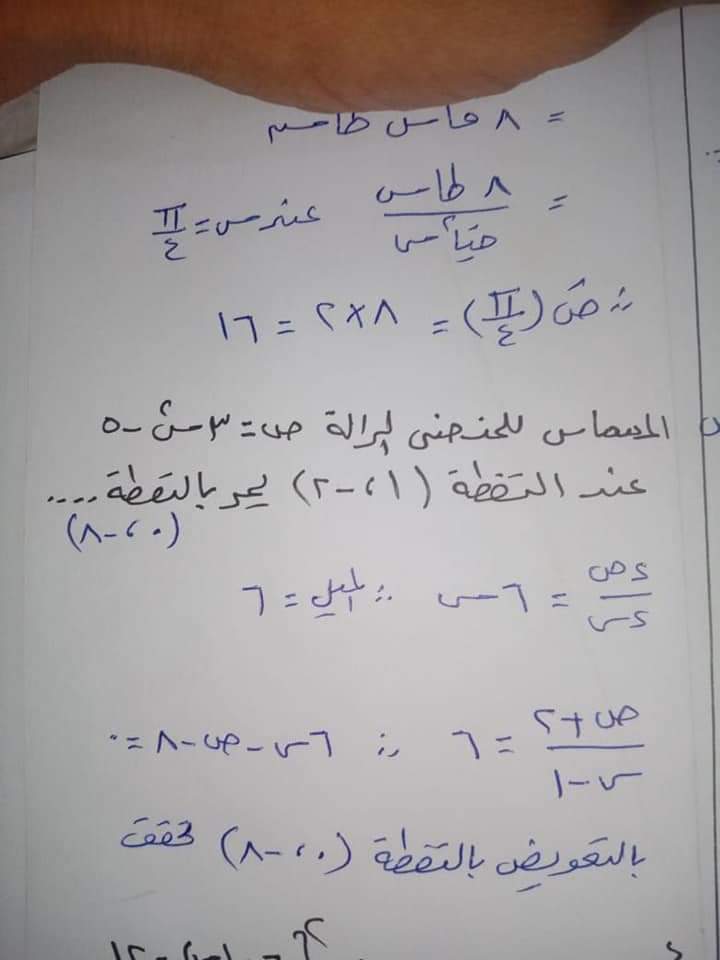 = ٨ قاس طاس
= ٨ طاس / جتا٢س عند س = π/٤
∴ صَ (π/٤) = ٨ × ٢ = ١٦
المماس للمنحنى لدالة ص = ٣س٢ - ٥
عند النقطة (١، -٢) يمر بالنقطة ....
(٠، -٨)
ءص / ءس = ٦س ∴ الميل = ٦
ص + ٢ / س - ١ = ٦ ∴ ٦س - ص - ٨ = ٠
بالتعويض بالنقطة (٠، -٨) تحقق